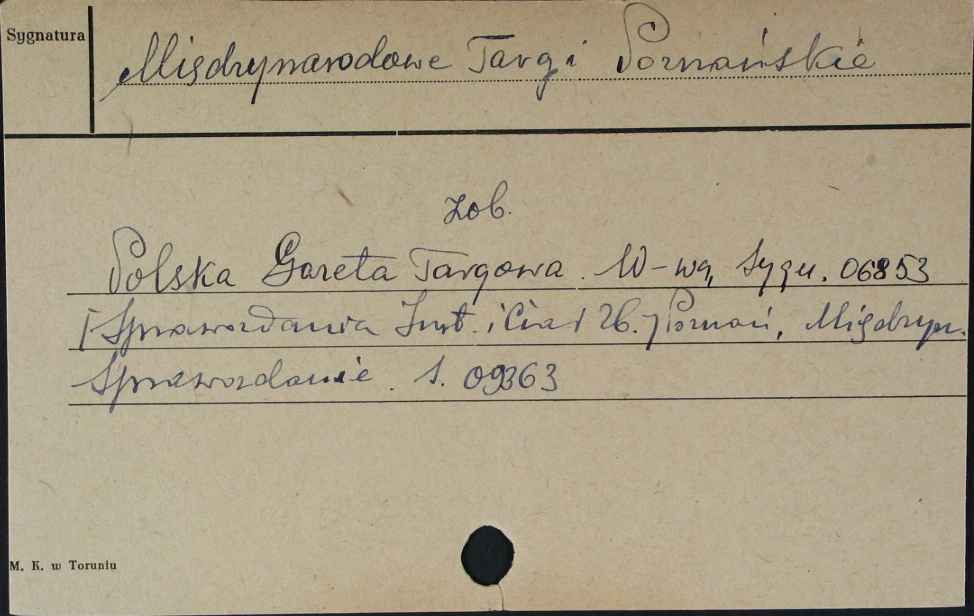 Sygnatura
Międzynarodowe Targi Poznańskie
zob.
Polska Gazeta Targowa. W-wa, Sygn. 06853
[Sprawozdania Inst. i Ciał Zb.] Poznań, Międzyn.
Sprawozdanie. S. 09363
M. K. w Toruniu